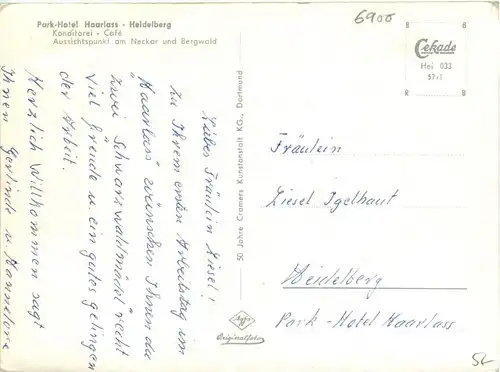 Park-Hotel Haarlass - Heidelberg
Konditorei - Café
Aussichtspunkt am Neckar und Bergwald
6900
B B
Cekade
Hei 033
57+1
R B
Liebes Fräulein Liesel!
Zu Ihrem ersten Arbeitstag im
"Haarlass" wünschen Ihnen da
zwei Schwarzwaldmädel recht
viel Freude u ein gutes gelingen
der Arbeit.
Herzlich Willkommen sagt
Ihnen Gerlinde u. Hannelore
50 Jahre Cramers Kunstanstalt KG., Dortmund
Agfa
Originalfoto
Fräulein
Liesel Igelhaut
Heidelberg
Park-Hotel Haarlass